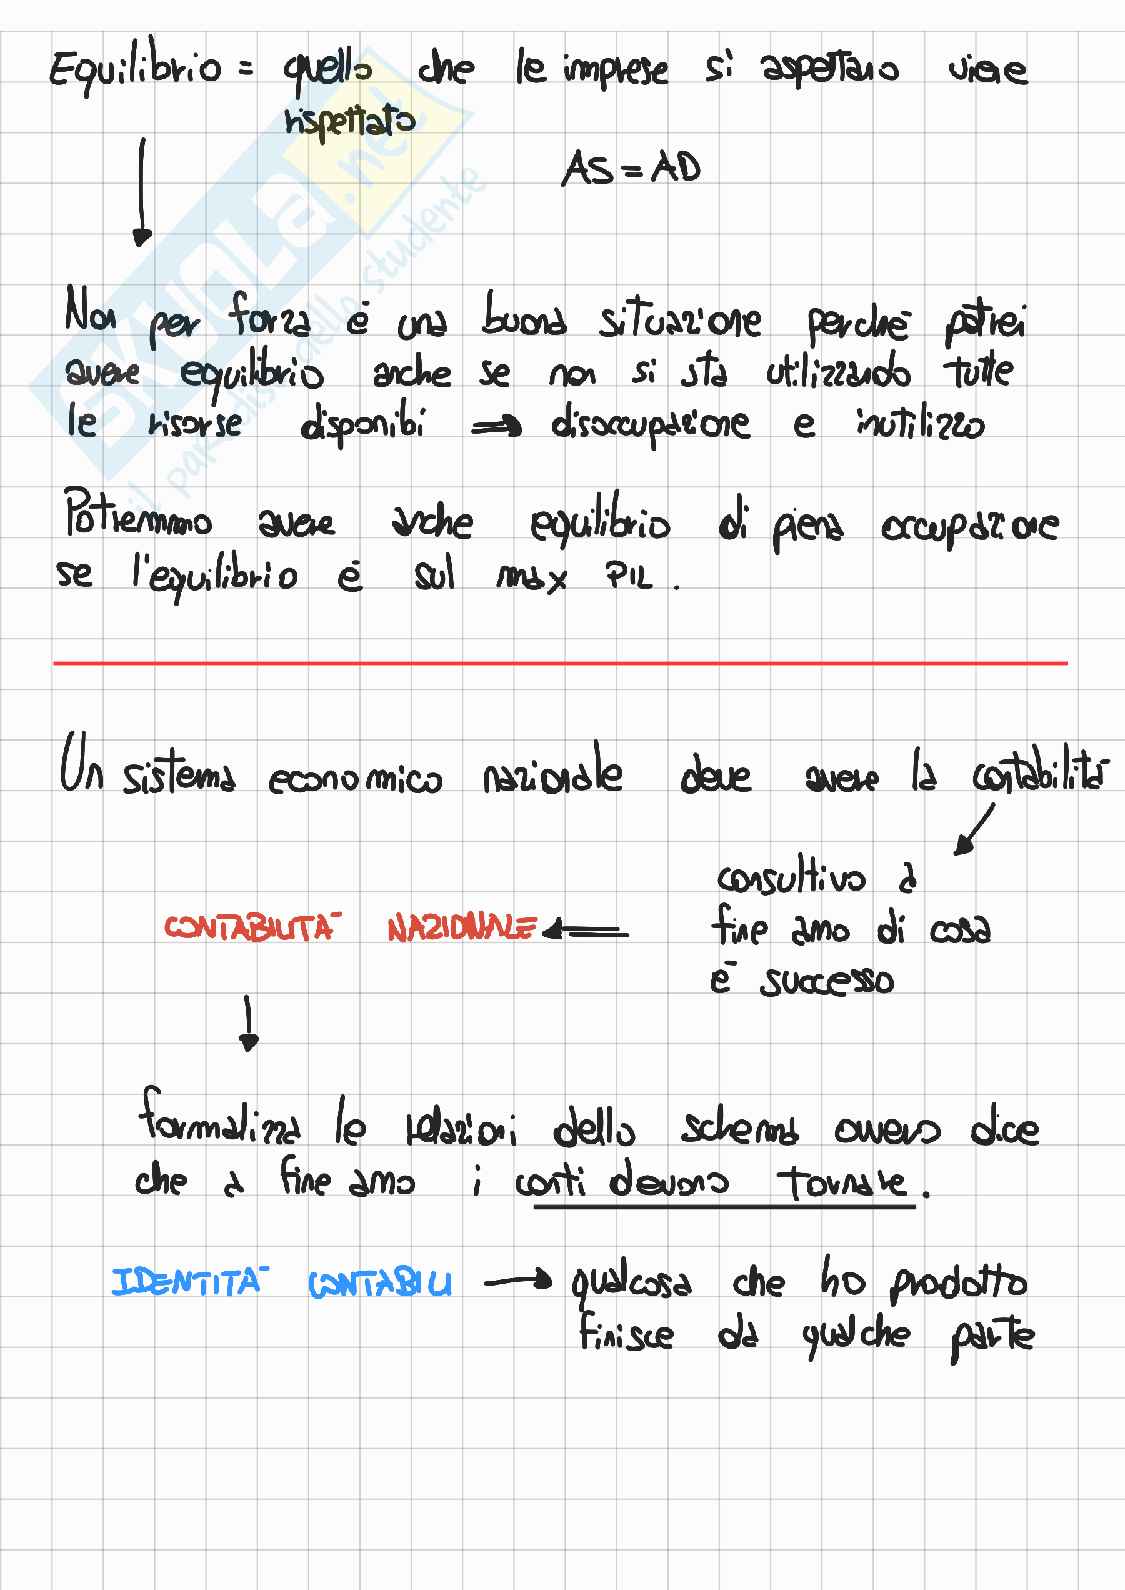 Equilibrio = quello che le imprese si aspettano viene
rispettato
AS = AD
Non per forza è una buona situazione perchè potrei
avere equilibrio anche se non si sta utilizzando tutte
le risorse disponibi → disoccupazione e inutilizzo
Potremmo avere anche equilibrio di piena occupazione
se l'equilibrio è sul max PIL.
Un sistema economico nazionale deve avere la contabilità
consultivo a
CONTABILITÀ NAZIONALE ← fine anno di cosa
è successo
formalizza le relazioni dello schema ovvero dice
che a fine anno i conti devono tornare.
IDENTITÀ CONTABILI → qualcosa che ho prodotto
finisce da qualche parte
SKUOLA.net
il paradiso dello studente